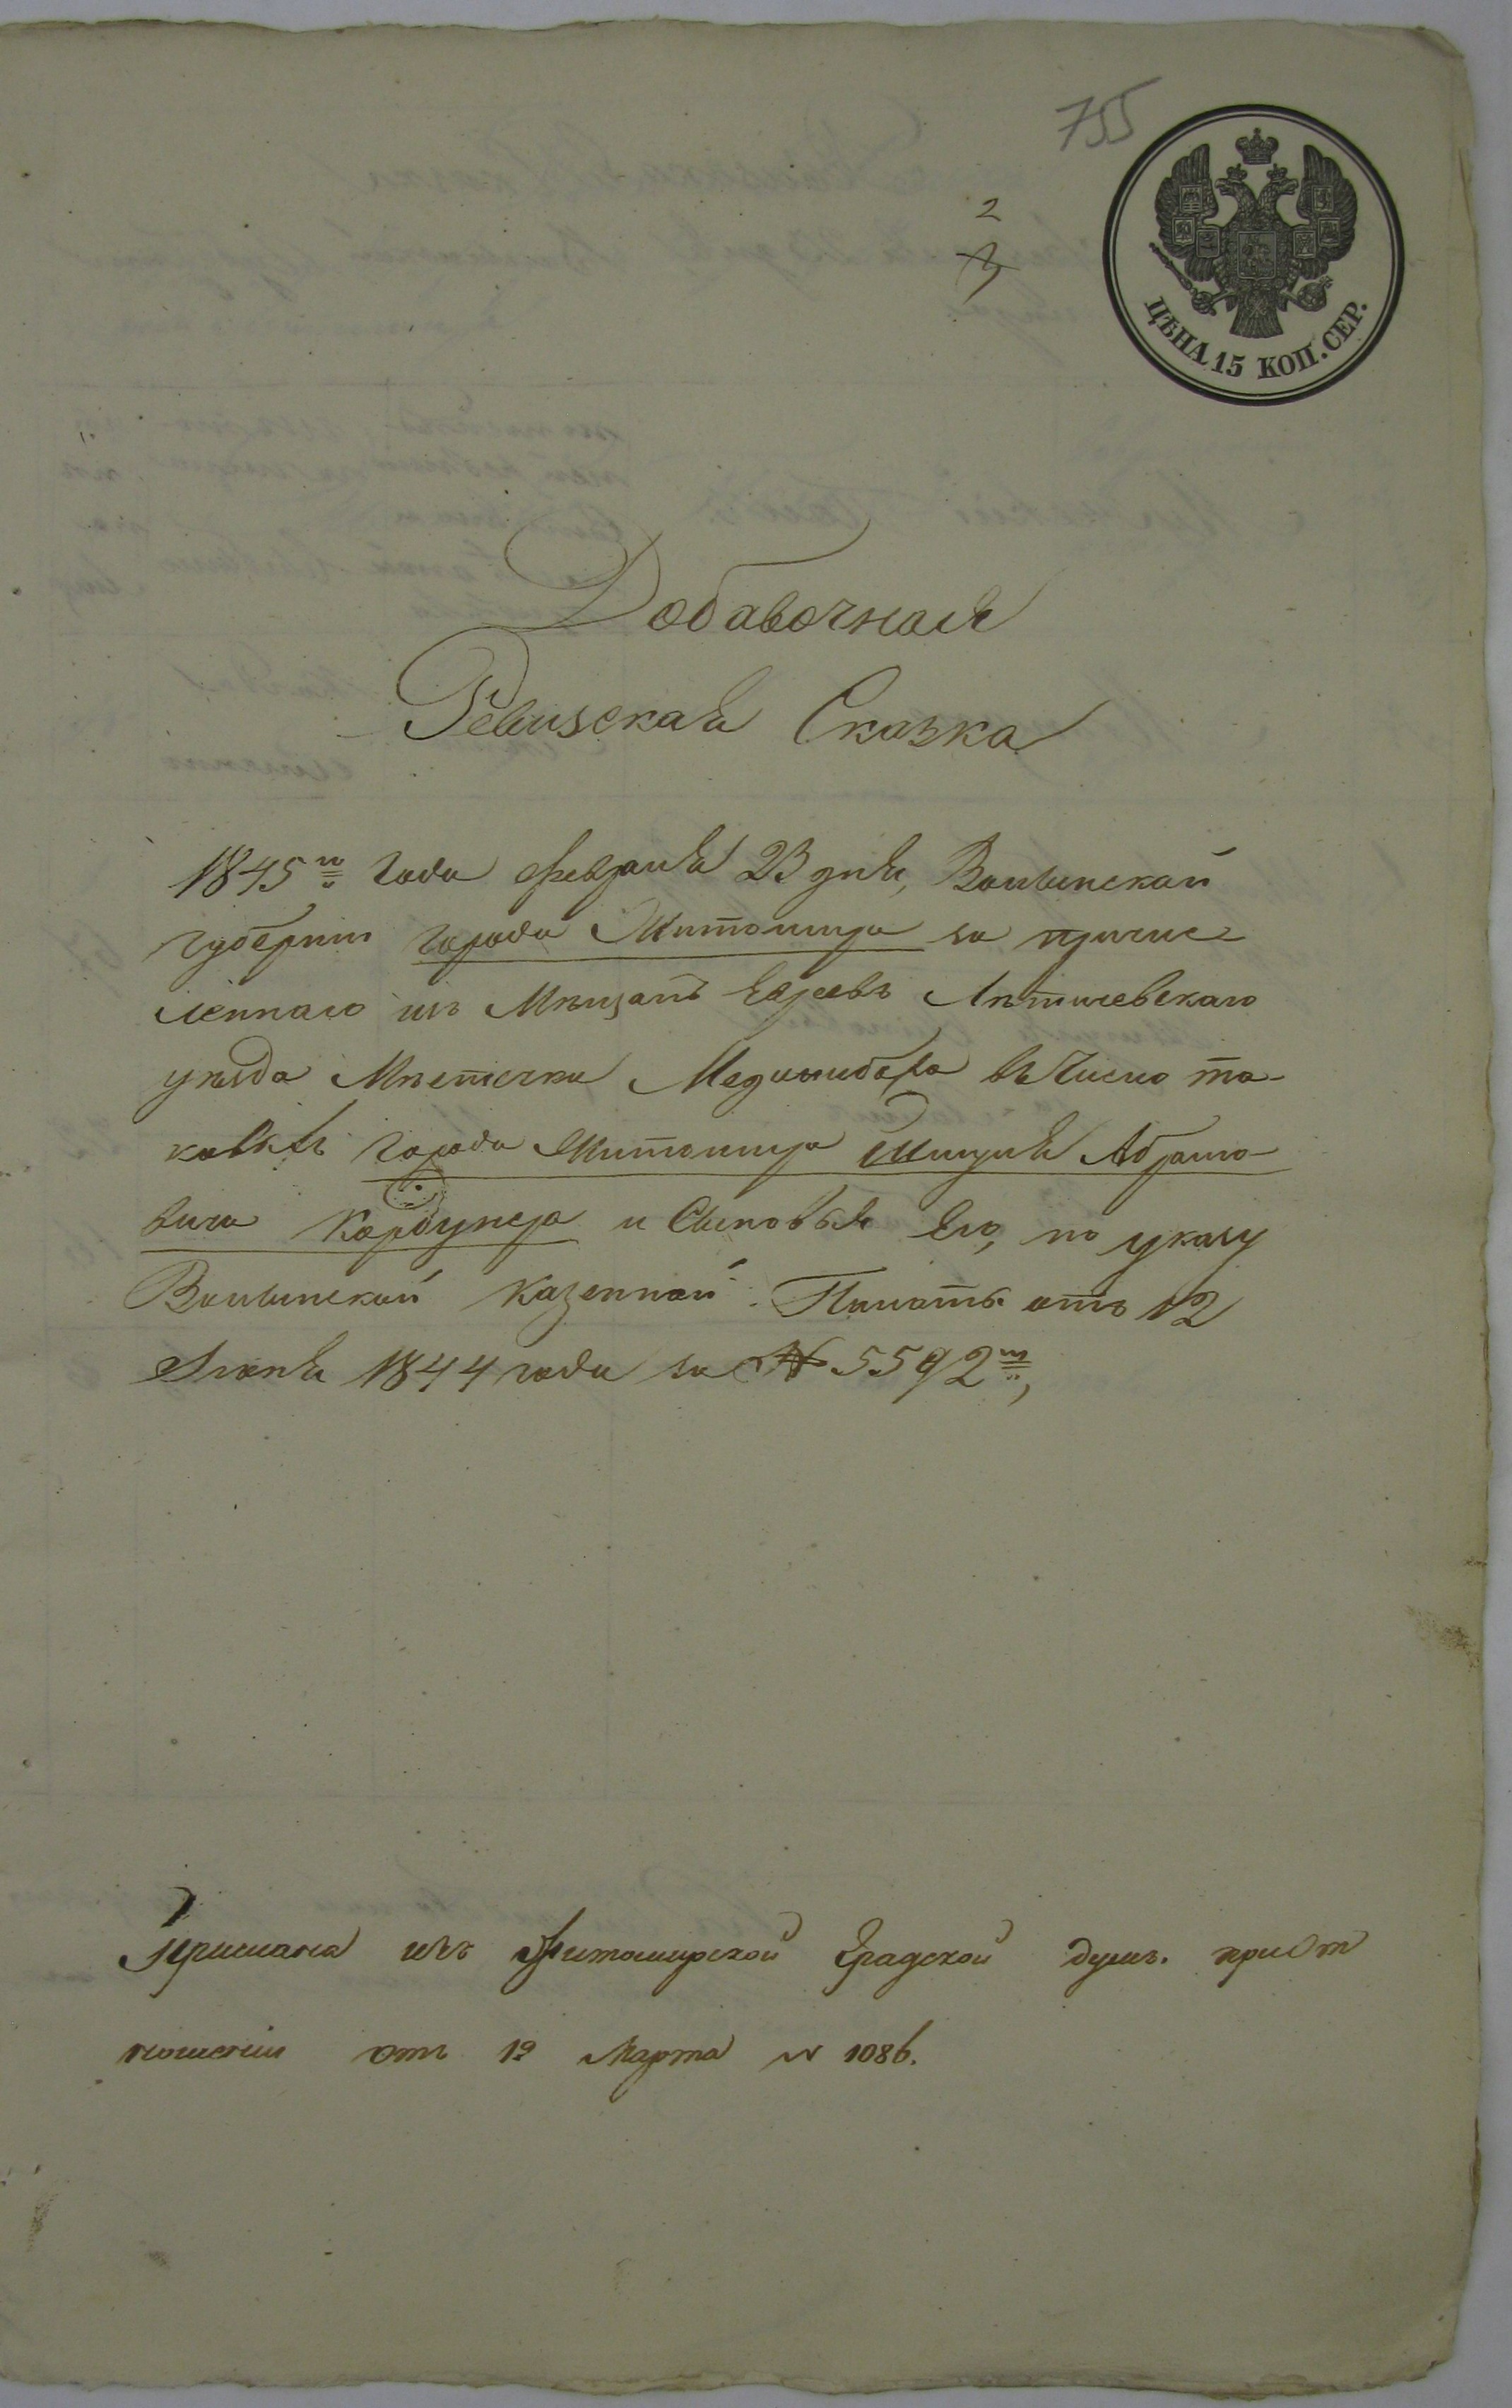 755
2
3
ЦѢНА 15 КОП. СЕР.
Добавочная
Ревизская Сказка
1845го года февраля 23 дня, Волынской
губерніи города Житомира за причис-
леннаго изъ Мѣщанъ Евреевъ Лѣтичевскаго
уѣзда Мѣстечка Меджибожа въ число та-
ковыхъ города Житомира Абрамо-
вича и Сыновья Его, по указу
Волынской Казенной Палаты отъ 12
Іюня 1844 года за № 5592м,
Прислана изъ Житомирской Градской думы. при От
ношеніи отъ 1го Марта № 1086.